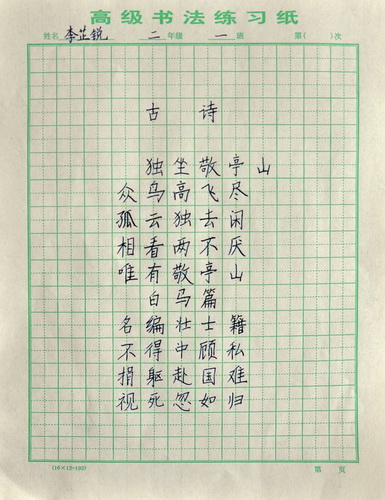 高级书法练习纸
姓名 李芷锐 二 年级 一 班 第( )次
古 诗
独坐敬亭山
众鸟高飞尽
孤云独去闲
相看两不厌
唯有敬亭山
白马篇
名编壮士籍
不得中顾私
捐躯赴国难
视死忽如归
(16×12=192)
第 页